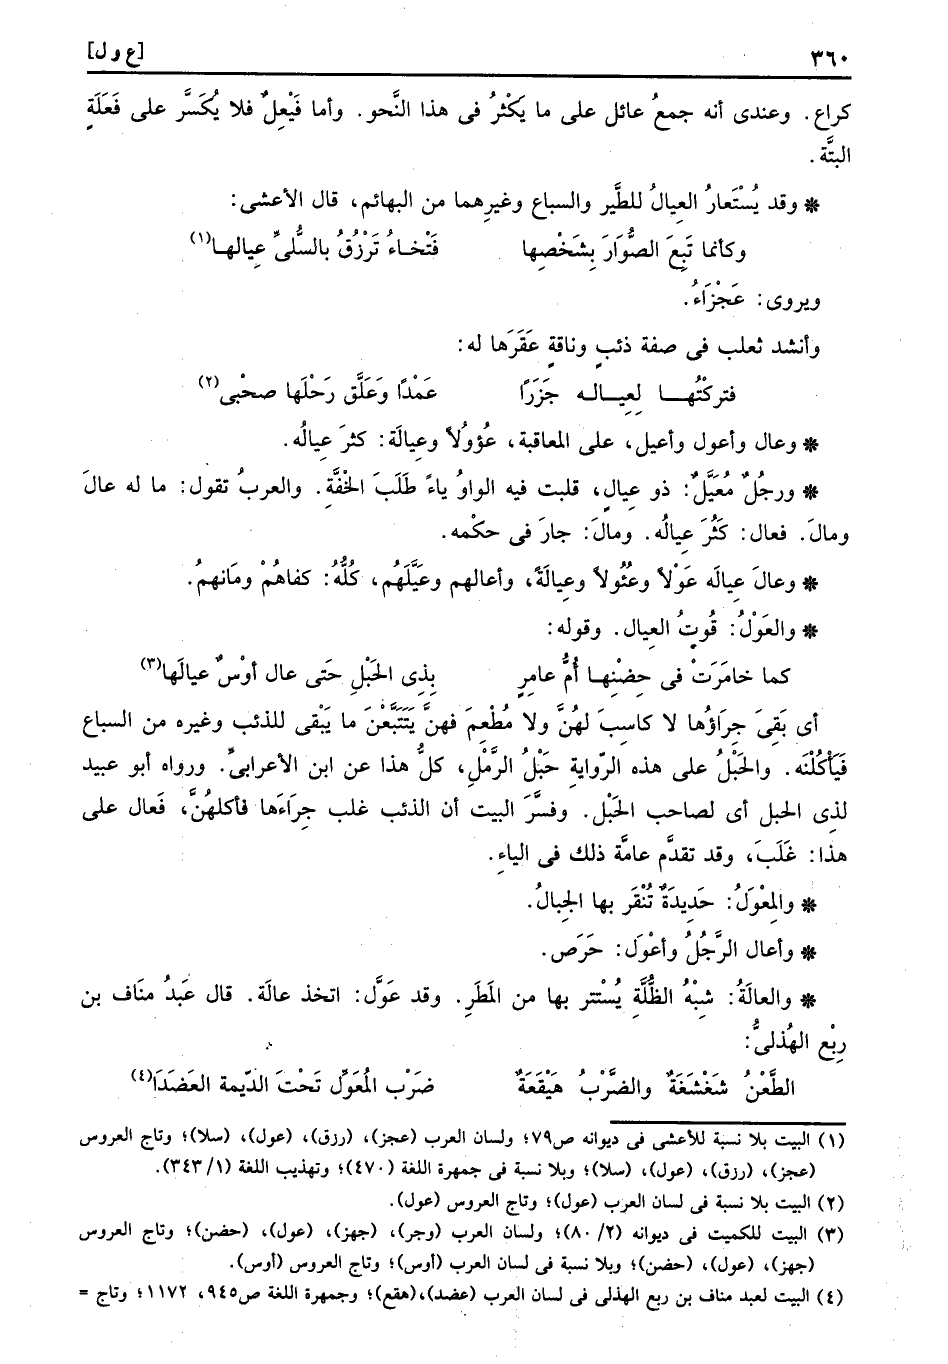 ٣٦٠ [ع و ل]
كراع. وعندى أنه جمعُ عائل على ما يَكْثرُ فى هذا النَّحو. وأما فَيْعِلٌ فلا يُكَسَّر على فَعَلَةٍ
البتَّة.
* وقد يُسْتَعارُ العِيالُ للطَّير والسباع وغيرِهما من البهائم، قال الأعشى:
وكأنما تَبِعَ الصُّوَارَ بِشَخْصِها فَتْخاءُ تَرْزُقُ بالسُّلىِّ عِيالها(١)
ويروى: عَجْزَاءُ.
وأنشد ثعلب فى صفة ذئبٍ وناقةٍ عَقَرَها له:
فتركْتُهــا لِعِيــالــه جَزَرًا عَمْدًا وَعَلَّق رَحْلَها صحْبى(٢)
* وعال وأعول وأعيل، على المعاقبة، عُؤولاً وعِيالَة: كثرَ عِيالُه.
* ورجلٌ مُعَيَّلٌ: ذو عيالٍ، قلبت فيه الواوُ ياءً طَلَبَ الخْفَّةِ. والعربُ تقول: ما له عالَ
ومالَ. فعال: كَثُرَ عِيالُه. ومالَ: جارَ فى حكْمه.
* وعالَ عيالَه عَوْلاً وعُئُولاً وعِيالَةً، وأعالهم وعَيَّلَهُم، كُلُّهُ: كفاهُمْ ومَانهمُ.
* والعَوْلُ: قُوتُ العِيال. وقوله:
كما خامَرَتْ فى حِضْنِهـا أُمُّ عامرٍ بِذِى الحَبْلِ حتَى عال أوْسٌ عيالَها(٣)
أى بَقِىَ جِرَاؤُها لا كاسِبَ لهُنَّ ولا مُطْعِمَ فهنَّ يَتَتَبَّعْنَ ما يَبْقى للذئب وغيره من السباع
فَيَأْكُلْنَه. والحَبْلُ على هذه الرّوايةِ حَبْلُ الرَّمْلِ، كلُّ هذا عن ابن الأعرابىِّ. ورواه أبو عبيد
لذى الحبل أى لصاحب الحَبْل. وفسَّرَ البيت أن الذئب غلب جِرَاءَها فأكلهُنَّ، فَعال على
هذا: غَلَبَ، وقد تقدَّم عامَّة ذلك فى الياءِ.
* والمِعْوَلُ: حَدِيدَةٌ تُنْقَر بها الجِبالُ.
* وأعال الرَّجُلُ وأعْوَل: حَرَص.
* والعالَةُ: شِبْهُ الظُّلَّةِ يُسْتتر بها من المَطَرِ. وقد عَوَّل: اتخذ عالَة. قال عَبدُ منَاف بن
رِبْعٍ الهُذلىُّ:
الطَّعْنُ شَغْشَغَةٌ والضَّرْبُ هَيْقَعَةٌ ضَرْب المُعَوِّلِ تَحْتَ الدّيمة العَضَدَا(٤)
(١) البيت بلا نسبة للأعشى فى ديوانه ص٧٩؛ ولسان العرب (عجز)، (رزق)، (عول)، (سلا)؛ وتاج العروس
(عجز)، (رزق)، (عول)، (سلا)؛ وبلا نسبة فى جمهرة اللغة (٤٧٠)؛ وتهذيب اللغة (٣٤٣/١).
(٢) البيت بلا نسبة فى لسان العرب (عول)؛ وتاج العروس (عول).
(٣) البيت للكميت فى ديوانه (٨٠/٢)؛ ولسان العرب (وجر)، (جهز)، (عول)، (حضن)؛ وتاج العروس
(جهز)، (عول)، (حضن)؛ وبلا نسبة فى لسان العرب (أوس)؛ وتاج العروس (أوس).
(٤) البيت لعبد مناف بن ربع الهذلى فى لسان العرب (عضد)،(هقع)؛ وجمهرة اللغة ص٩٤٥، ١١٧٢؛ وتاج =